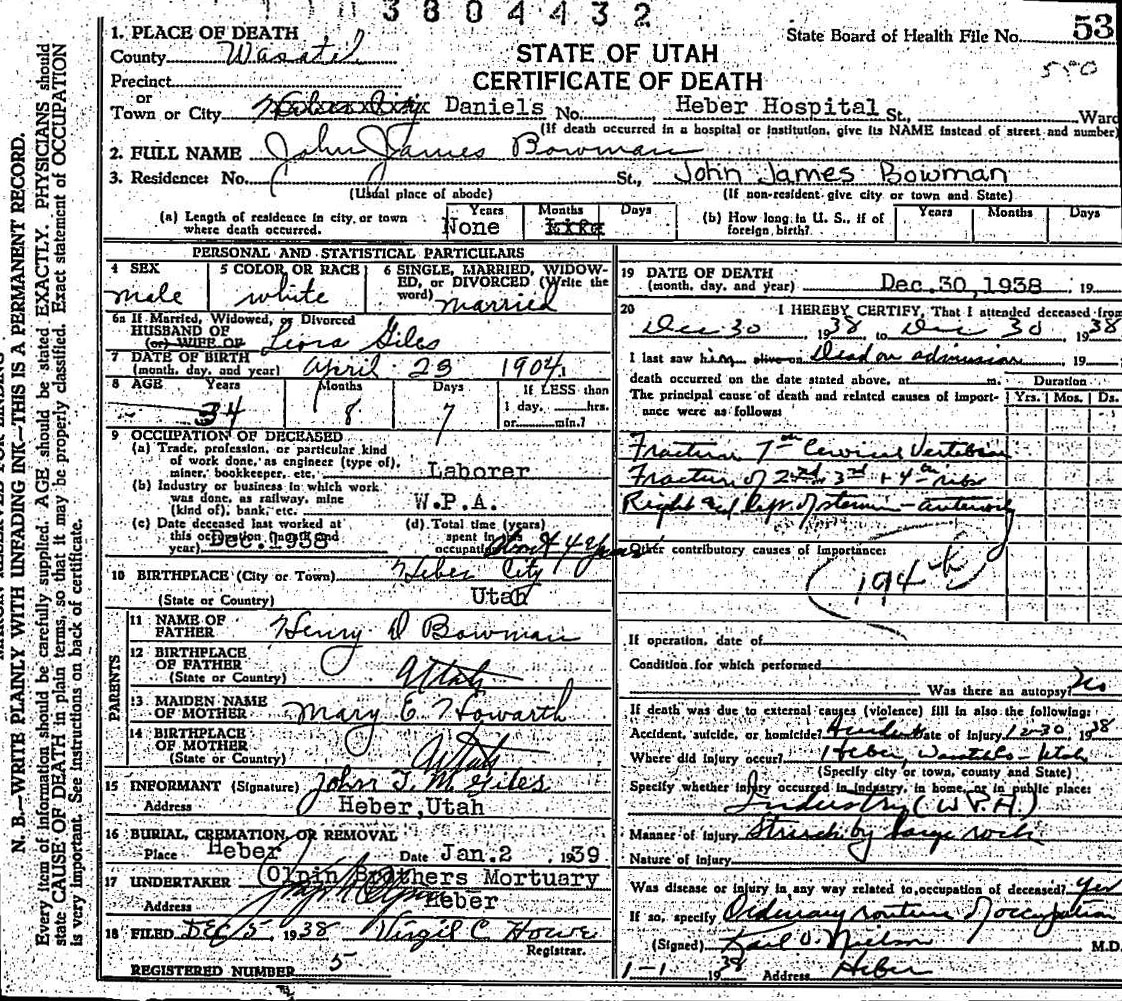 3804432
1. PLACE OF DEATH
State Board of Health File No. 53
County Wasatch
STATE OF UTAH
550
Precinct
CERTIFICATE OF DEATH
or
Town or City Heber City Daniels No. Heber Hospital St., Ward
(If death occurred in a hospital or institution, give its NAME instead of street and number)
2. FULL NAME John James Bowman
3. Residence: No. St., John James Bowman
(Usual place of abode) (If non-resident give city or town and State)
(a) Length of residence in city or town where death occurred. Years None Months Life Days
(b) How long in U. S., if of foreign birth? Years Months Days
PERSONAL AND STATISTICAL PARTICULARS
4 SEX male
5 COLOR OR RACE white
6 SINGLE, MARRIED, WIDOWED, or DIVORCED (Write the word) married
6a If Married, Widowed, or Divorced
HUSBAND OF
(or) WIFE OF Leora Giles
7 DATE OF BIRTH
(month, day, and year) April 23 1904
8 AGE Years 34 Months 8 Days 7 If LESS than 1 day, hrs. or min.?
9 OCCUPATION OF DECEASED
(a) Trade, profession, or particular kind
of work done, as engineer (type of),
miner, bookkeeper, etc. Laborer
(b) Industry or business in which work
was done, as railway, mine
(kind of), bank, etc. W.P.A.
(c) Date deceased last worked at
this occupation (month and
year) Dec. 1938
(d) Total time (years)
spent in this
occupation 4 years
10 BIRTHPLACE (City or Town) Heber City
(State or Country) Utah
PARENTS
11 NAME OF
FATHER Henry D Bowman
12 BIRTHPLACE
OF FATHER
(State or Country) Utah
13 MAIDEN NAME
OF MOTHER Mary E. Howarth
14 BIRTHPLACE
OF MOTHER
(State or Country) Utah
15 INFORMANT (Signature) John T. M. Giles
Address Heber, Utah
16 BURIAL, CREMATION, OR REMOVAL
Place Heber Date Jan. 2, 1939
17 UNDERTAKER Olpin Brothers Mortuary
Address Heber
18 FILED Dec 5, 1938 Virgil C. Howe
Registrar.
REGISTERED NUMBER 5
19 DATE OF DEATH
(month, day, and year) Dec. 30, 1938, 19
20 I HEREBY CERTIFY, That I attended deceased from
Dec 30 1938 to Dec 30, 1938
I last saw him alive on Dead on admission, 19
death occurred on the date stated above, at m.
The principal cause of death and related causes of importance were as follows:
Duration
Yrs. Mos. Ds.
Fracture 7th Cervical Vertebrae
Fracture of 2nd 3rd + 4th ribs
Right and left of sternum - anteriorly
Other contributory causes of importance:
194
If operation, date of
Condition for which performed
Was there an autopsy? No
If death was due to external causes (violence) fill in also the following:
Accident, suicide, or homicide? Accident Date of injury 12-30, 1938
Where did injury occur? Heber, Wasatch - Utah
(Specify city or town, county and State)
Specify whether injury occurred in industry, in home, or in public place:
Industry (W P A)
Manner of injury Struck by large rock
Nature of injury
Was disease or injury in any way related to occupation of deceased? Yes
If so, specify Ordinary routine of occupation
(Signed) Karl O. Nielson M.D.
1-1 1938 Address Heber
N. B.—WRITE PLAINLY WITH UNFADING INK—THIS IS A PERMANENT RECORD.
Every item of information should be carefully supplied. AGE should be stated EXACTLY. PHYSICIANS should
state CAUSE OF DEATH in plain terms, so that it may be properly classified. Exact statement of OCCUPATION
is very important. See instructions on back of certificate.